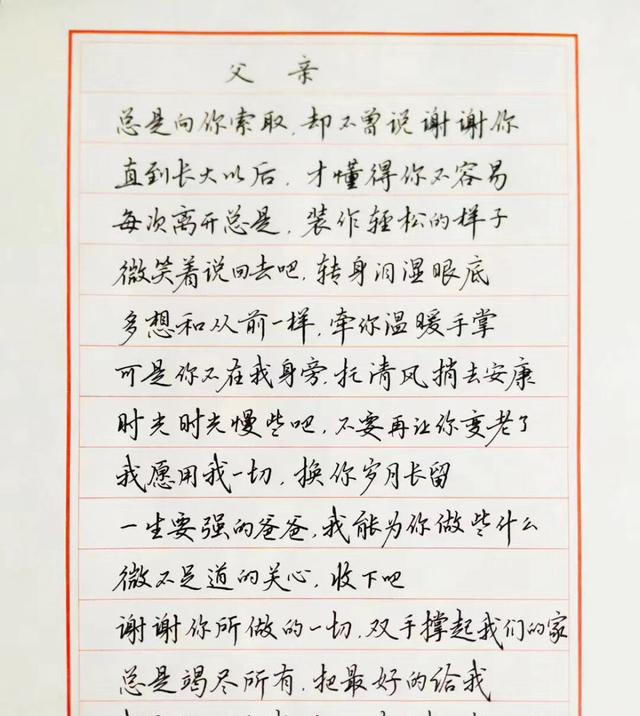 父亲
总是向你索取,却不曾说谢谢你
直到长大以后,才懂得你不容易
每次离开总是,装作轻松的样子
微笑着说回去吧,转身泪湿眼底
多想和从前一样,牵你温暖手掌
可是你不在我身旁,托清风捎去安康
时光时光慢些吧,不要再让你变老了
我愿用我一切,换你岁月长留
一生要强的爸爸,我能为你做些什么
微不足道的关心,收下吧
谢谢你所做的一切,双手撑起我们的家
总是竭尽所有,把最好的给我